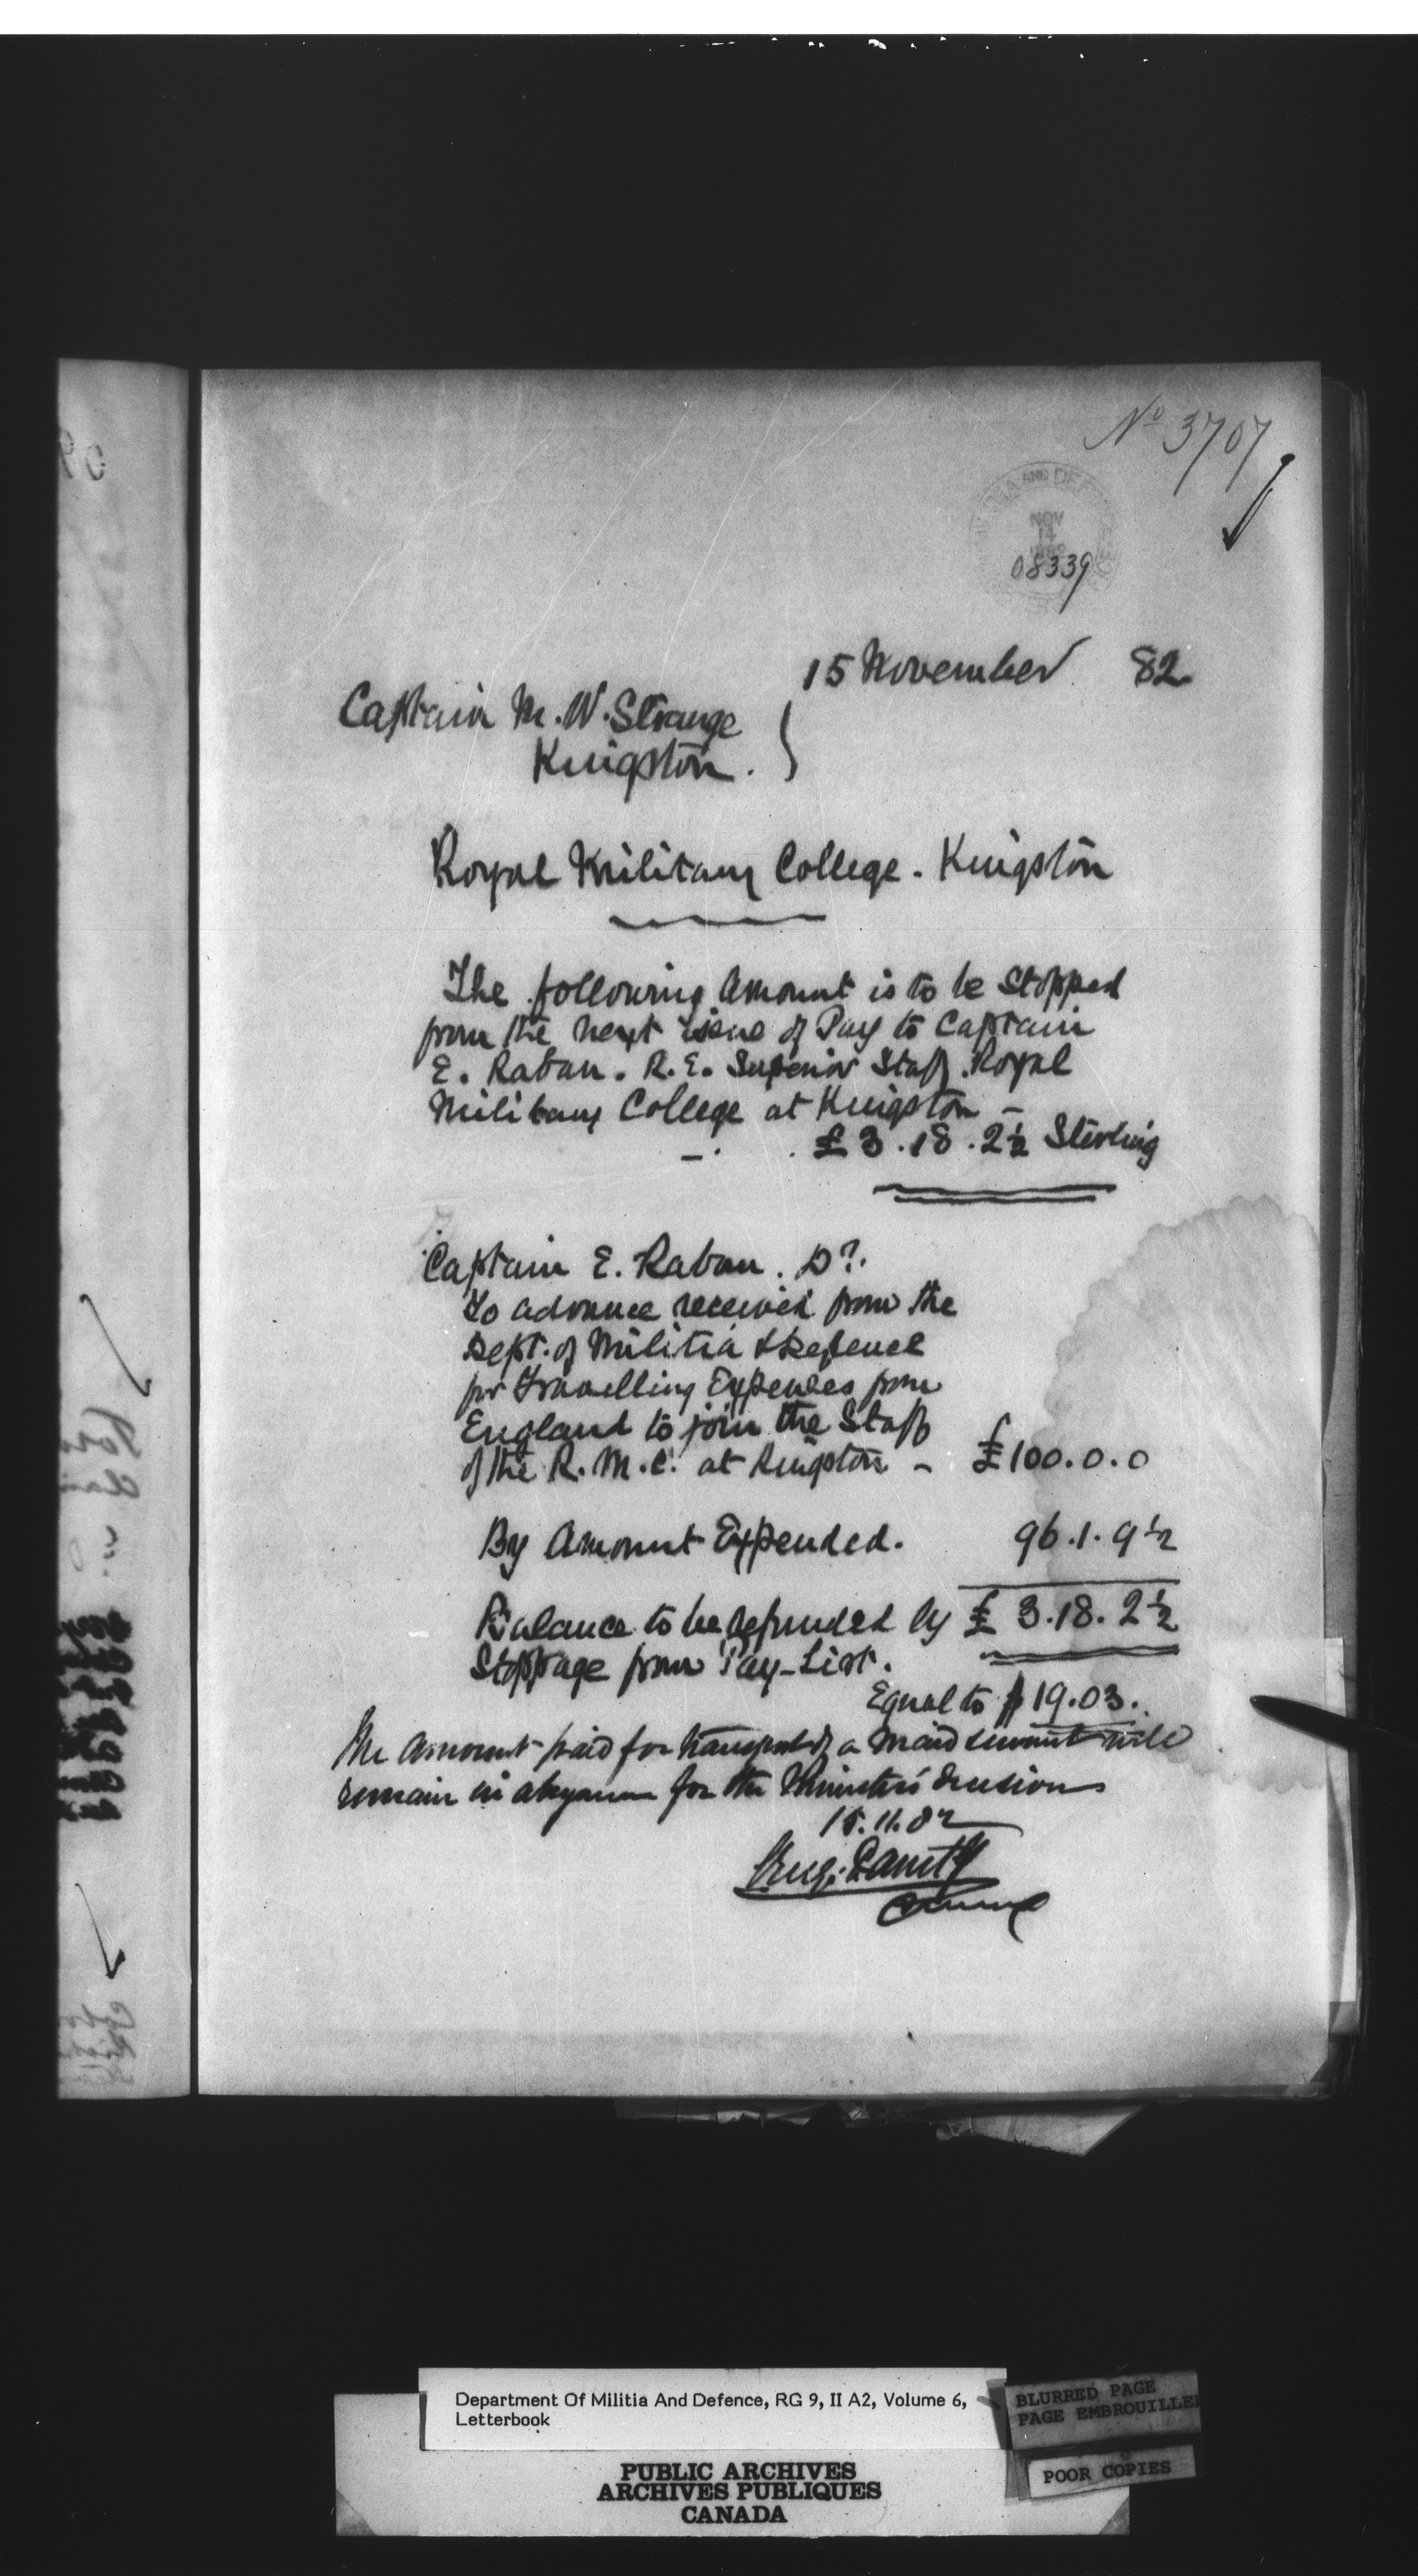 No 3707
AND DEF
NOV
14
08339
15 November 82
Captain M. W. Strange
Kingston.
Royal Military College. Kingston
The following Amount is to be Stopped
from the next issue of Pay to Captain
E. Raban. R.E. Superior Staff. Royal
Military College at Kingston –
£3.18.2½ Sterling
Captain E. Raban. Dr.
To advance received from the
Dept. of Militia & Defence
for Travelling Expenses from
England to join the Staff
of the R.M.C. at Kingston – £100.0.0
By Amount Expended. 96.1.9½
Balance to be refunded by £3.18.2½
Stoppage from Pay-List.
Equal to $19.03.
The Amount paid for transport of a maid servant will
remain in abeyance for the Minister's decision
15.11.82
Department Of Militia And Defence, RG 9, II A2, Volume 6,
Letterbook
BLURRED PAGE
PAGE EMBROUILLEE
POOR COPIES
PUBLIC ARCHIVES
ARCHIVES PUBLIQUES
CANADA